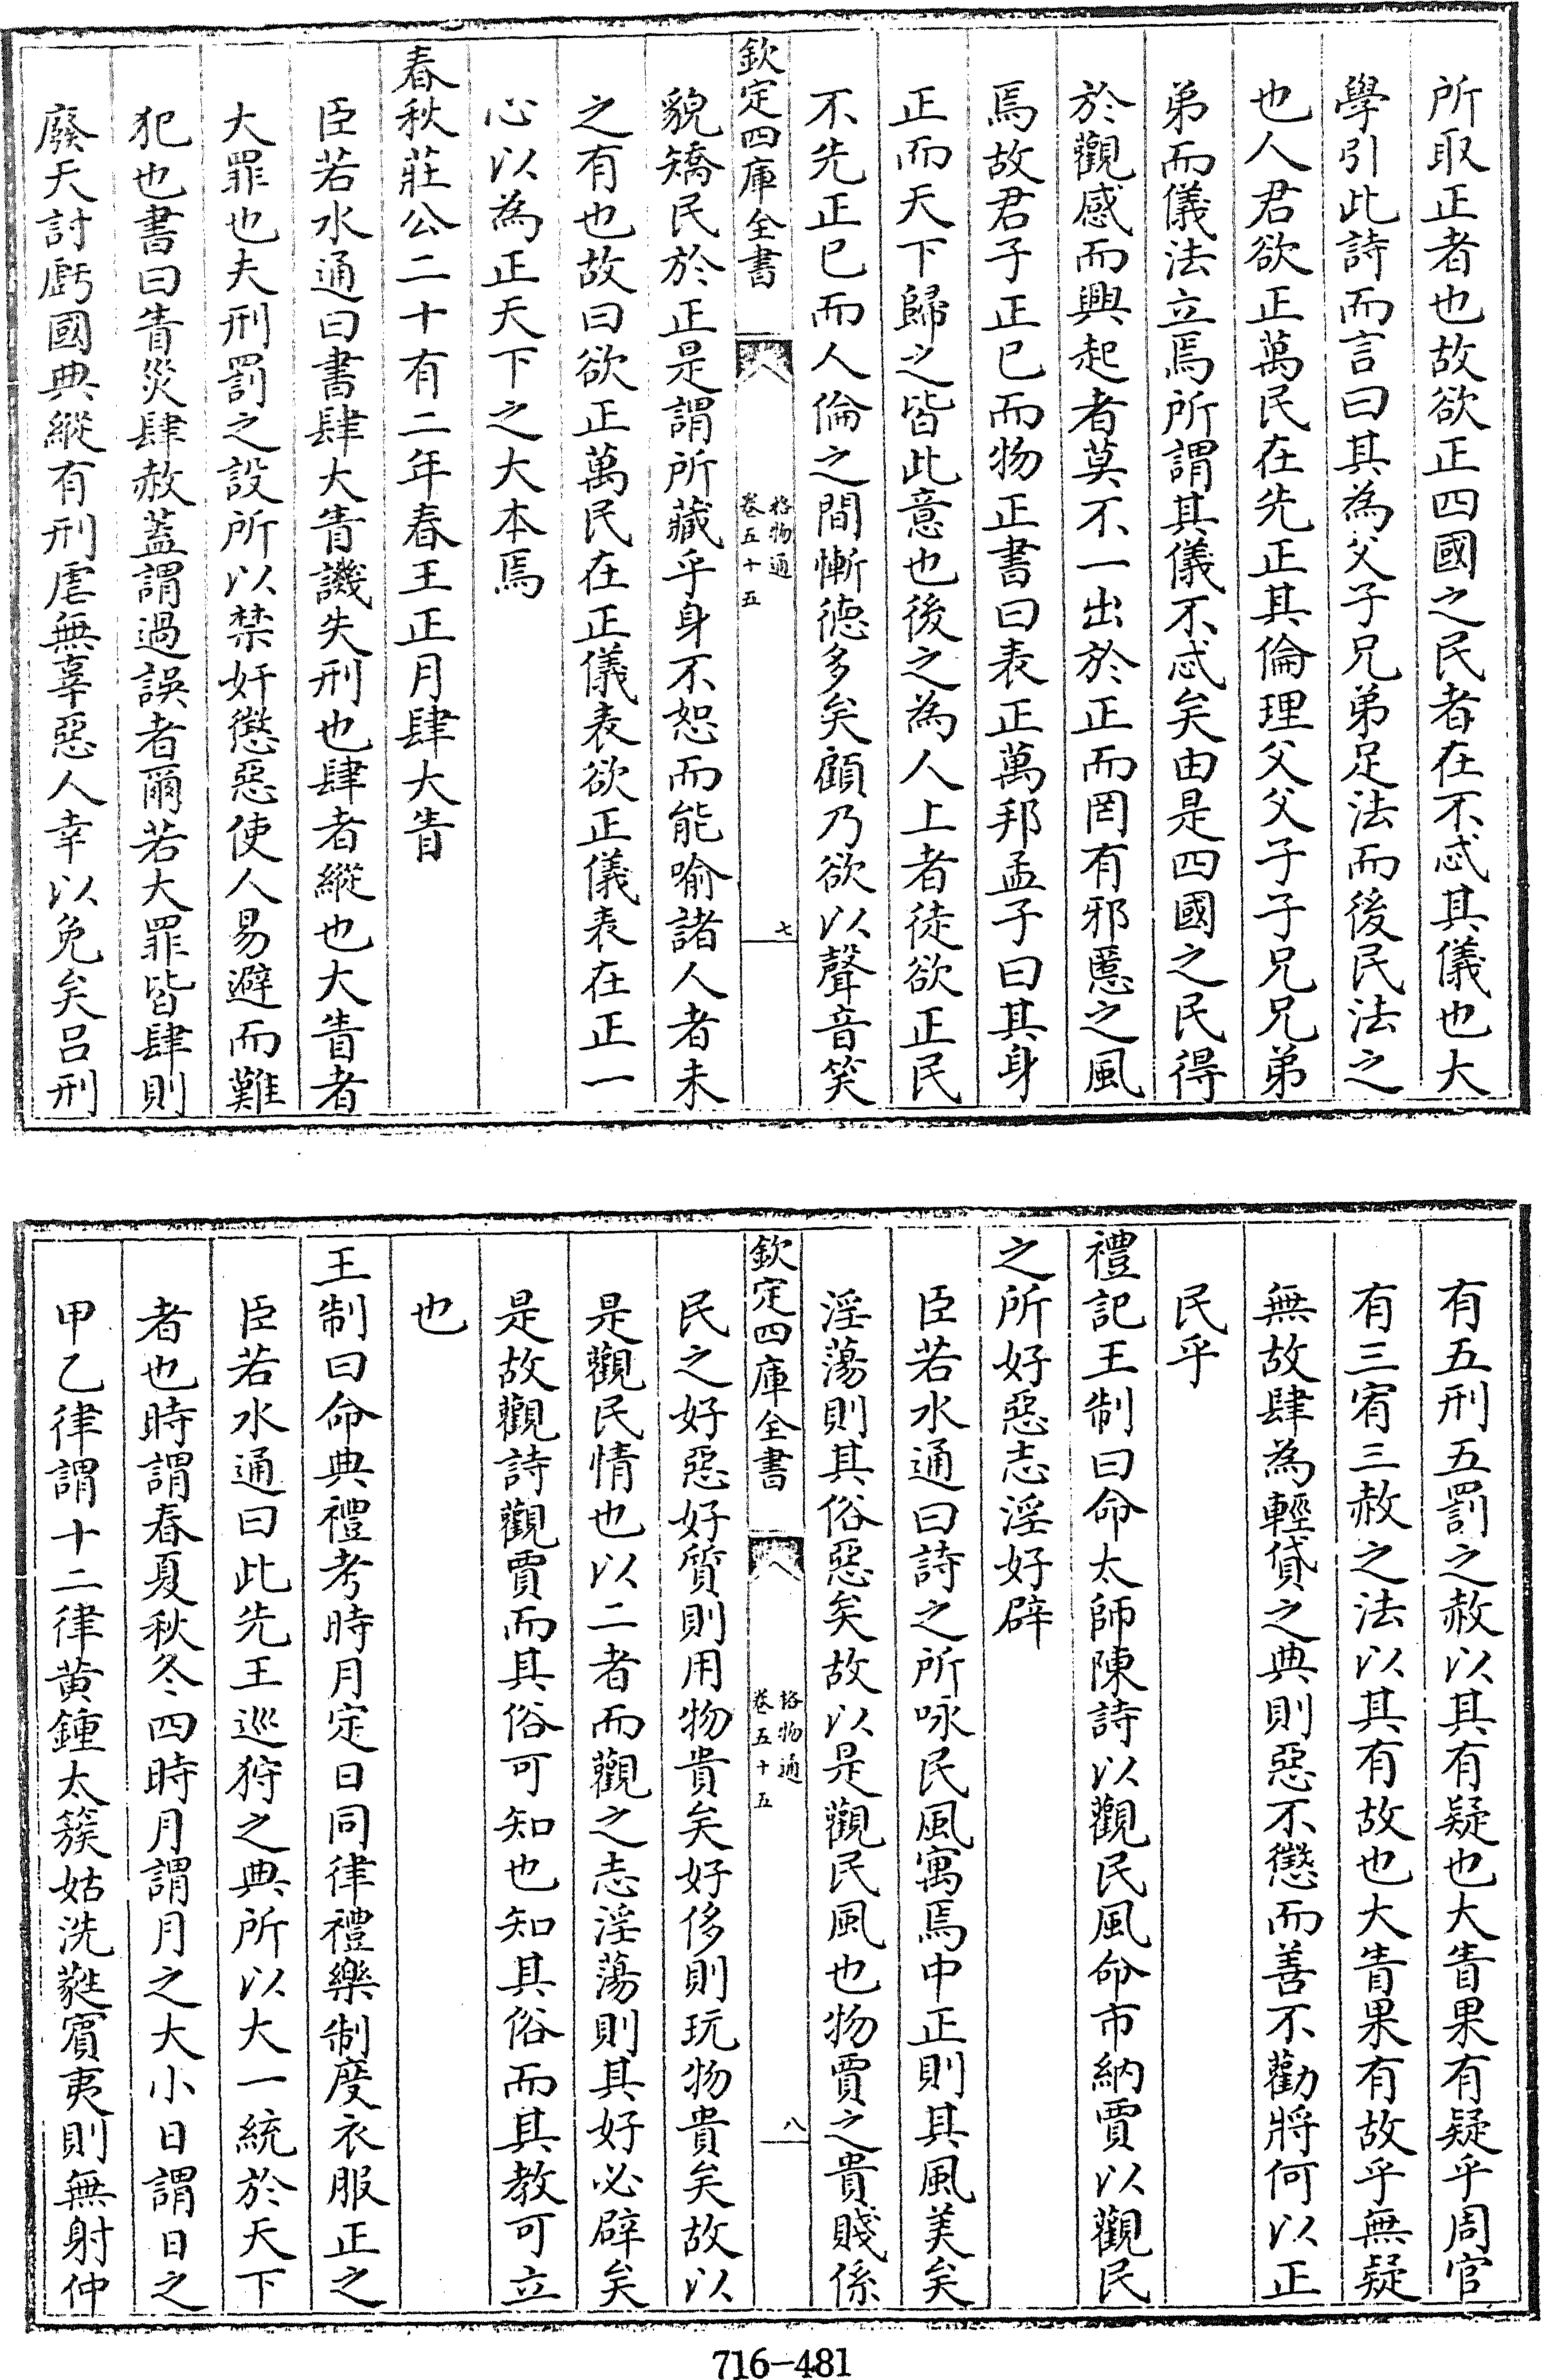 所取正者也故欲正四國之民者在不忒其儀也大
學引此詩而言曰其為父子兄弟足法而後民法之
也人君欲正萬民在先正其倫理父父子子兄兄弟
弟而儀法立焉所謂其儀不忒矣由是四國之民得
於觀感而興起者莫不一出於正而罔有邪慝之風
焉故君子正已而物正書曰表正萬邦孟子曰其身
正而天下歸之皆此意也後之為人上者徒欲正民
不先正已而人倫之間慚德多矣顧乃欲以聲音笑
欽定四庫全書
格物通
卷五十五
七
貌矯民於正是謂所藏乎身不恕而能喻諸人者未
之有也故曰欲正萬民在正儀表欲正儀表在正一
心以為正天下之大本焉
春秋莊公二十有二年春王正月肆大眚
臣若水通曰書肆大眚譏失刑也肆者縱也大眚者
大罪也夫刑罰之設所以禁奸懲惡使人易避而難
犯也書曰眚災肆赦蓋謂過誤者爾若大罪皆肆則
廢天討虧國典縱有刑虐無辜惡人幸以免矣呂刑
有五刑五罰之赦以其有疑也大眚果有疑乎周官
有三宥三赦之法以其有故也大眚果有故乎無疑
無故肆為輕貸之典則惡不懲而善不勸將何以正
民乎
禮記王制曰命太師陳詩以觀民風命市納賈以觀民
之所好惡志淫好辟
臣若水通曰詩之所咏民風寓焉中正則其風美矣
淫蕩則其俗惡矣故以是觀民風也物賈之貴賤係
欽定四庫全書
格物通
卷五十五
八
民之好惡好質則用物貴矣好侈則玩物貴矣故以
是觀民情也以二者而觀之志淫蕩則其好必辟矣
是故觀詩觀賈而其俗可知也知其俗而其教可立
也
王制曰命典禮考時月定日同律禮樂制度衣服正之
臣若水通曰此先王巡狩之典所以大一統於天下
者也時謂春夏秋冬四時月謂月之大小日謂日之
甲乙律謂十二律黄鍾太簇姑洗蕤賓夷則無射仲
716-481